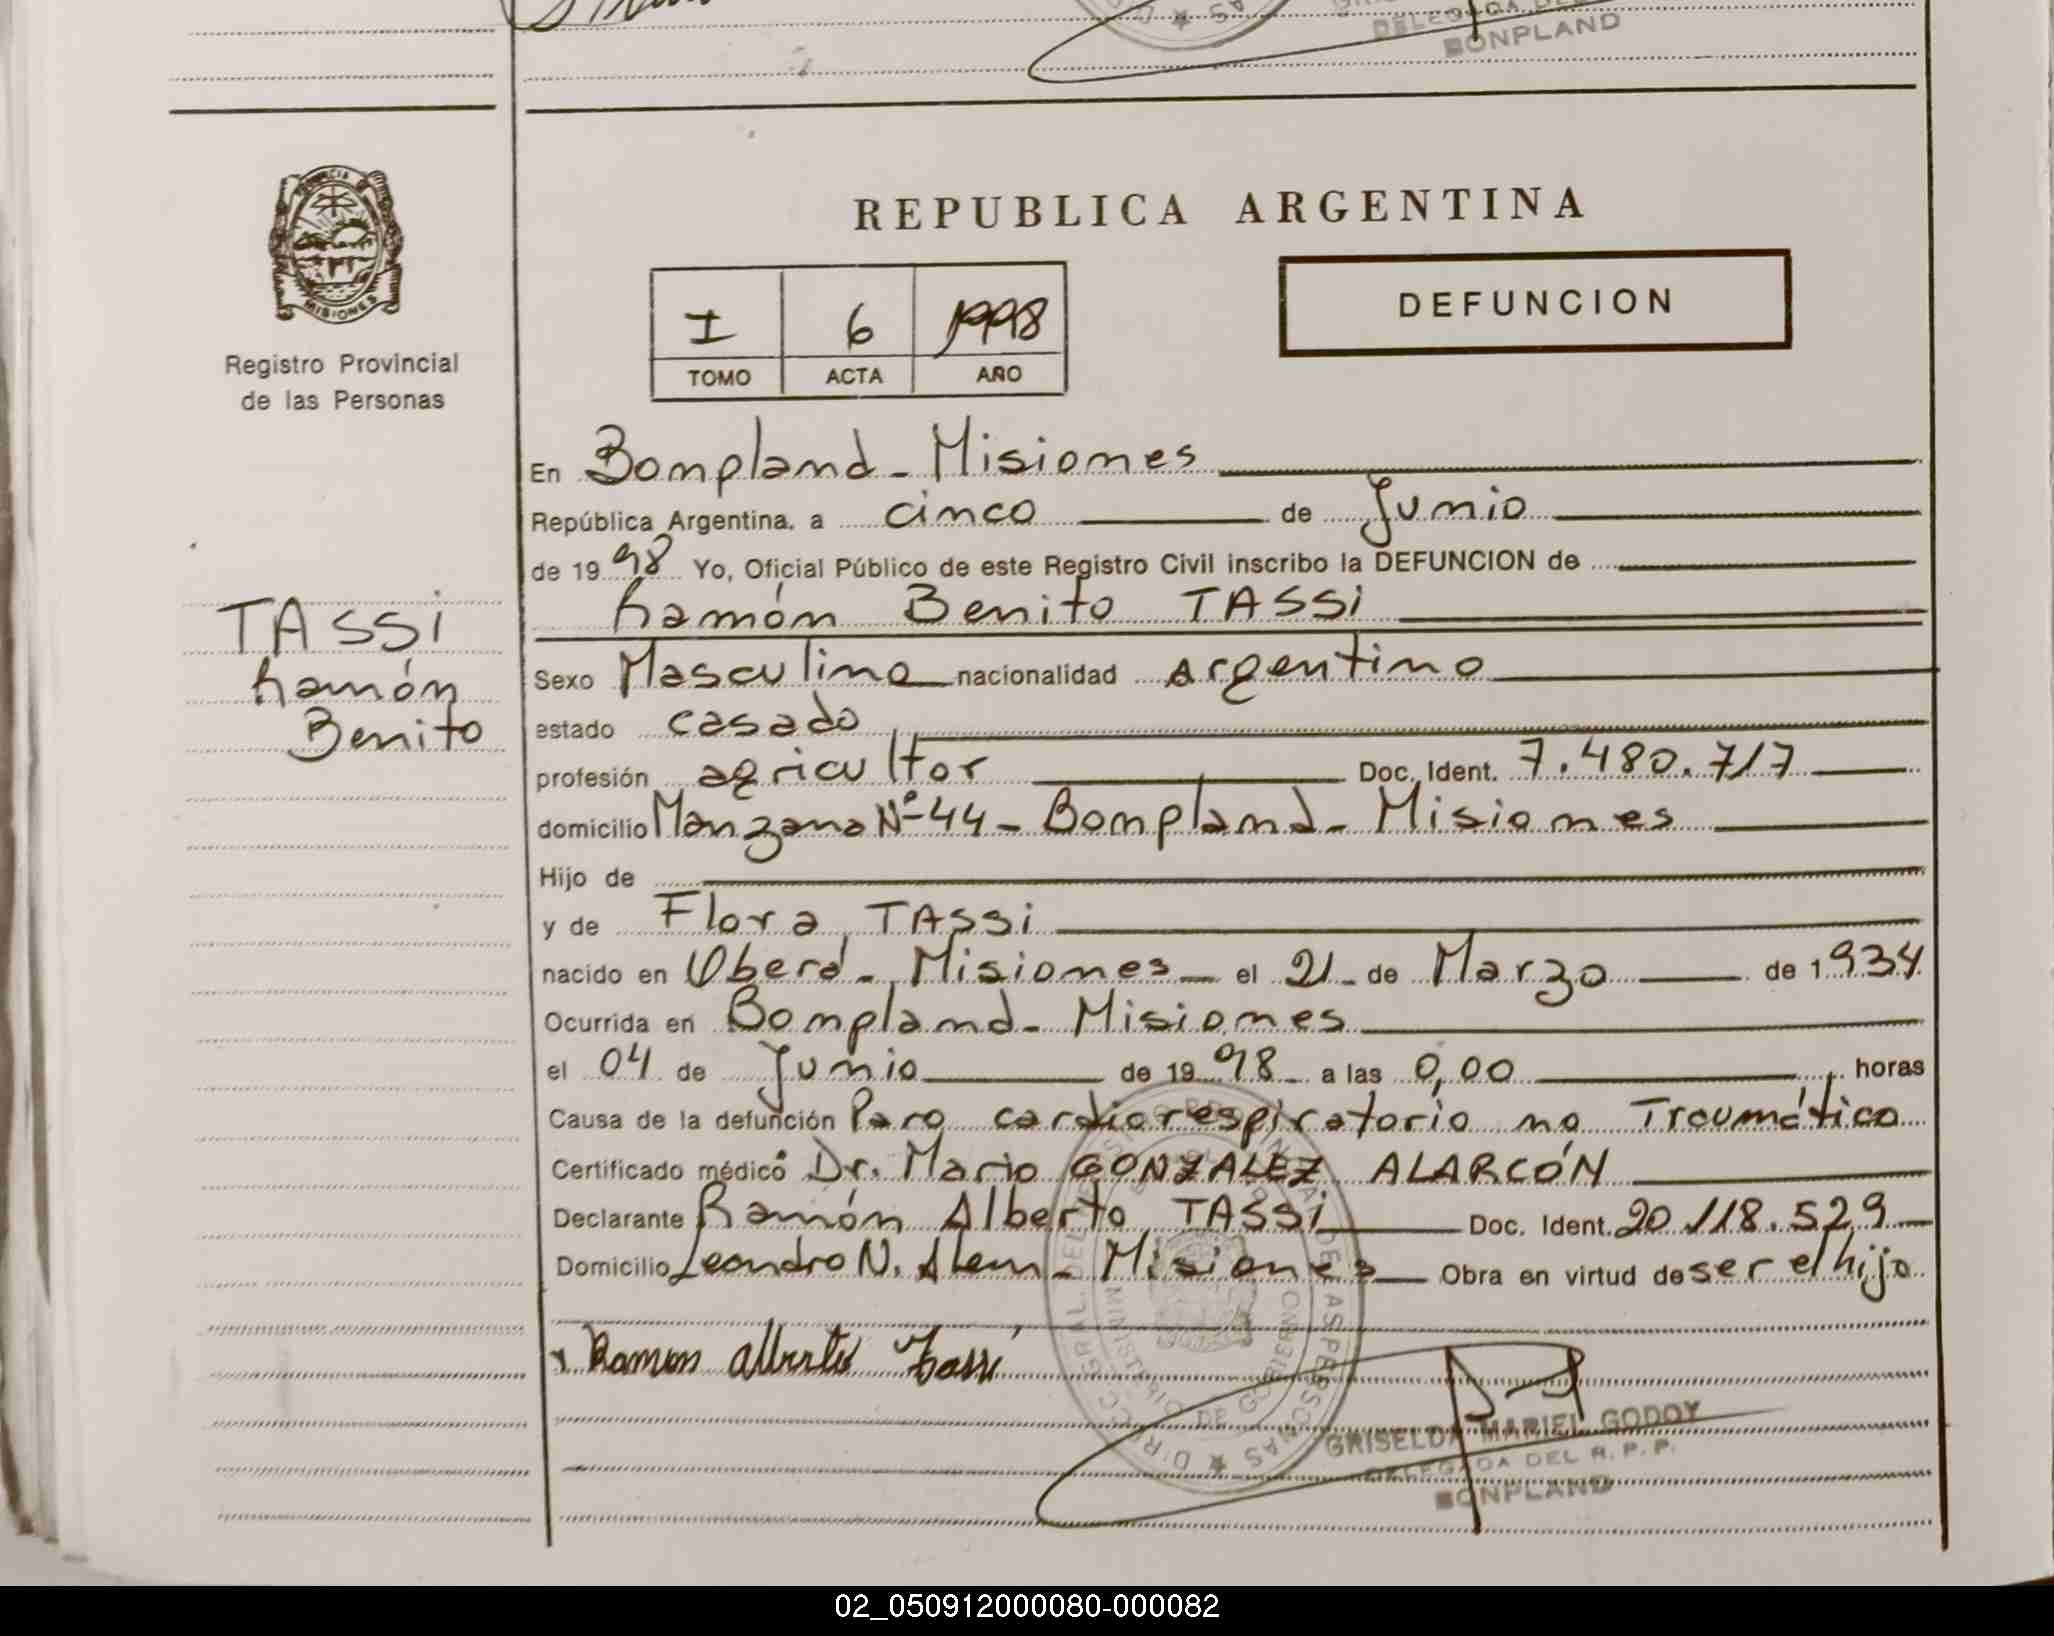 DELEGADA DE
BONPLAND
PROVINCIA DE
MISIONES
Registro Provincial
de las Personas
REPUBLICA ARGENTINA
I 6 1998
TOMO ACTA AÑO
DEFUNCION
En Bompland - Misiones
República Argentina, a cinco de Junio
de 1998 Yo, Oficial Público de este Registro Civil inscribo la DEFUNCION de
Ramón Benito TASSi
TASSi
Ramón
Benito
Sexo Masculino nacionalidad Argentino
estado casado
profesión agricultor Doc. Ident. 7.480.717
domicilio Manzana Nº 44 - Bompland - Misiones
Hijo de
y de Flora TASSi
nacido en Oberá - Misiones - el 21 - de Marzo de 1934
Ocurrida en Bompland - Misiones
el 04 de Junio de 1998 a las 0,00 horas
Causa de la defunción Paro cardiorespiratorio no Traumático
Certificado médico Dr. Mario GONZALEZ ALARCÓN
Declarante Ramón Alberto TASSi Doc. Ident. 20.118.529
Domicilio Leandro N. Alem - Misiones Obra en virtud de ser el hijo
Ramon Alberto Tassi
GRISELDA MARIEL GODOY
DELEGADA DEL R.P.P.
BONPLAND
02_050912000080-000082